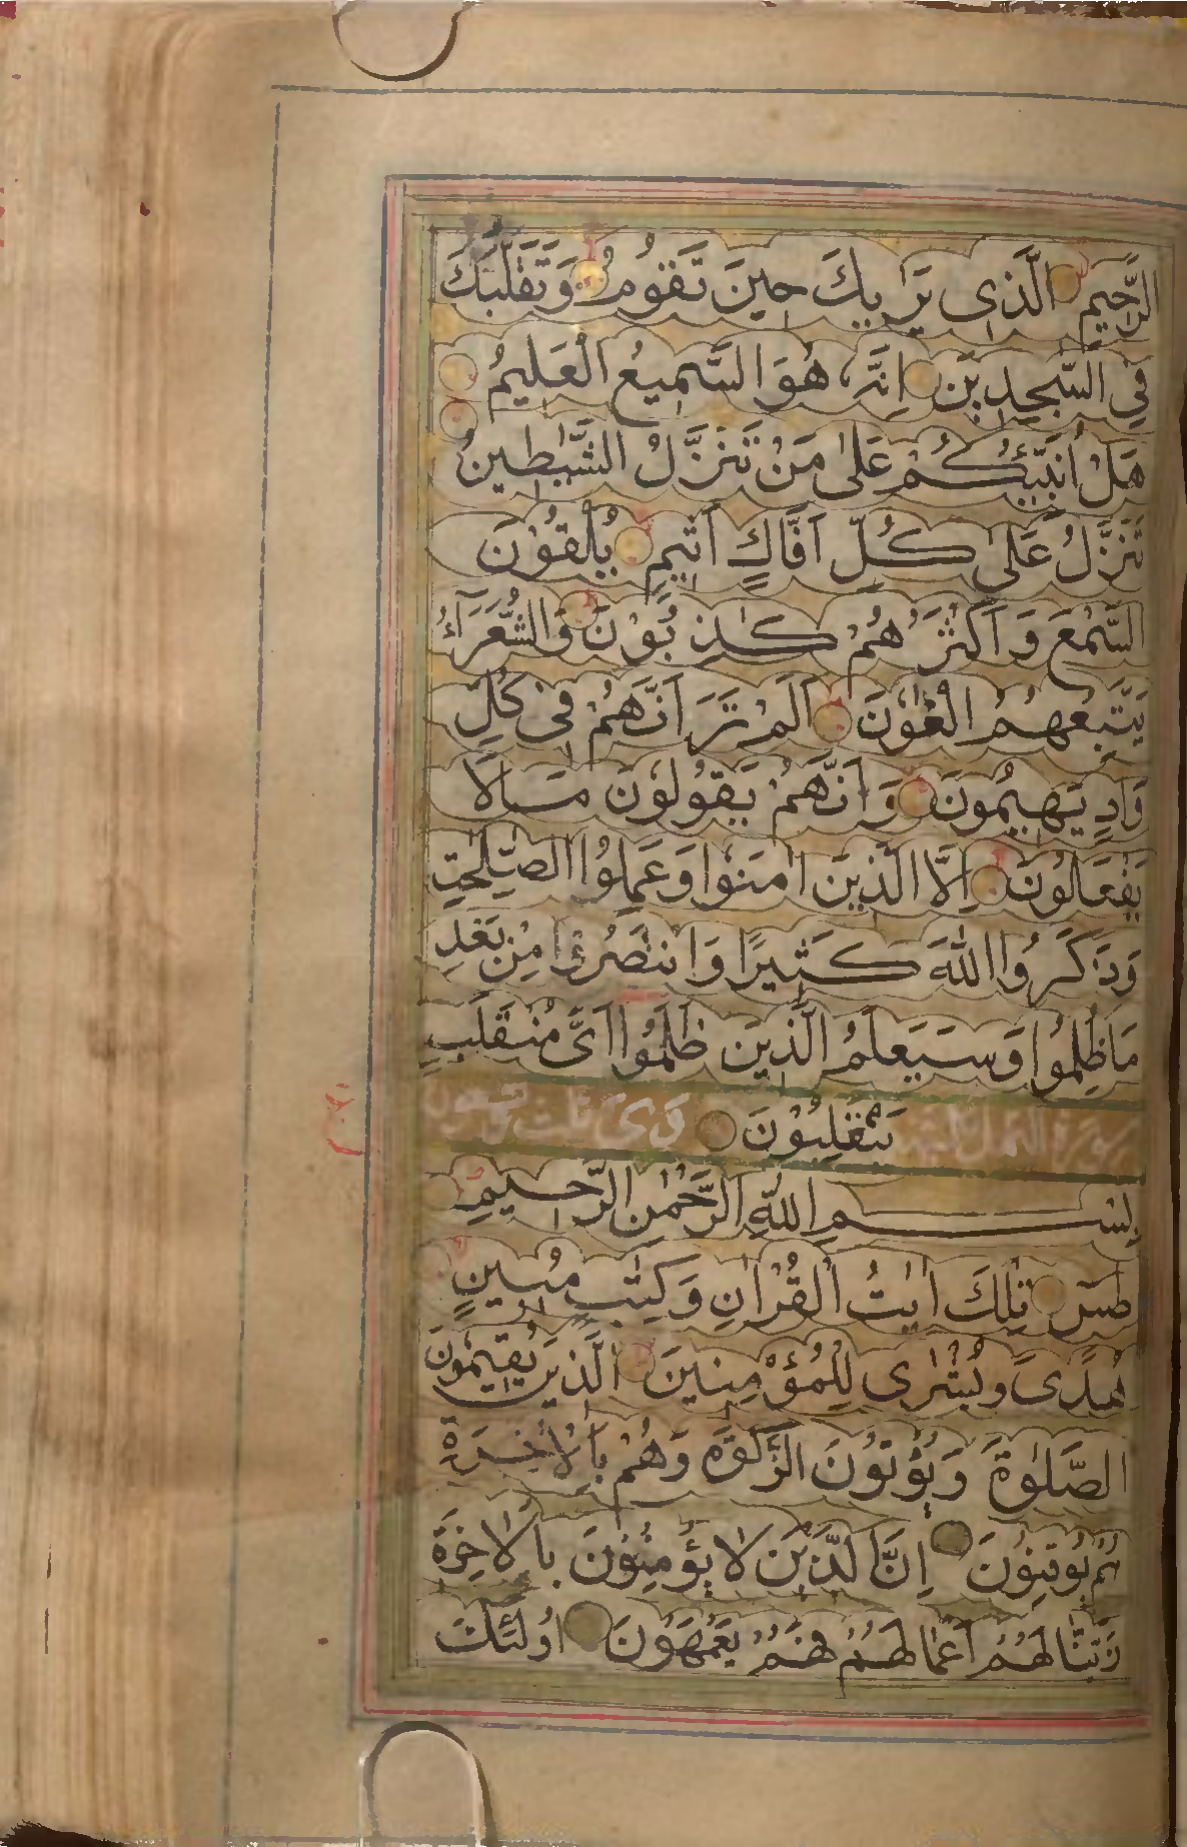 الرَّحِيمِ الَّذِى يَرٰيكَ حِينَ تَقُومُ وَتَقَلُّبَكَ
فِي السّٰجِدِينَ اِنَّهُ هُوَ السَّمِيعُ الْعَلِيمُ
هَلْ اُنَبِّئُكُمْ عَلٰى مَنْ تَنَزَّلُ الشَّيٰطِينُ
تَنَزَّلُ عَلٰى كُلِّ اَفَّاكٍ اَثِيمٍ يُلْقُوْنَ
السَّمْعَ وَاَكْثَرُهُمْ كٰذِبُوْنَ وَالشُّعَرَآءُ
يَتَّبِعُهُمُ الْغٰوٗنَ اَلَمْ تَرَ اَنَّهُمْ فِى كُلِّ
وَادٍ يَهِيمُونَ وَاَنَّهُمْ يَقُولُونَ مَالَا
يَفْعَلُونَ اِلَّا الَّذِينَ اٰمَنُوا وَعَمِلُوا الصّٰلِحٰتِ
وَذَكَرُوا اللّٰهَ كَثِيرًا وَانْتَصَرُوْا مِنْ بَعْدِ
مَا ظُلِمُوا وَسَيَعْلَمُ الَّذِينَ ظَلَمُوا اَىَّ مُنْقَلَبٍ
يَنْقَلِبُوْنَ
سورة النمل
بِسْمِ اللّٰهِ الرَّحْمٰنِ الرَّحِيمِ
طٰسٓ تِلْكَ اٰيٰتُ الْقُرْاٰنِ وَكِتٰبٍ مُبِينٍ
هُدًى وَبُشْرٰى لِلْمُؤْمِنِينَ الَّذِينَ يُقِيمُونَ
الصَّلٰوةَ وَيُؤْتُوْنَ الزَّكٰوةَ وَهُمْ بِالْاٰخِرَةِ
هُمْ يُوقِنُوْنَ اِنَّ الَّذِيْنَ لَا يُؤْمِنُوْنَ بِالْاٰخِرَةِ
زَيَّنَّا لَهُمْ اَعْمَالَهُمْ فَهُمْ يَعْمَهُوْنَ اُولٰئِكَ